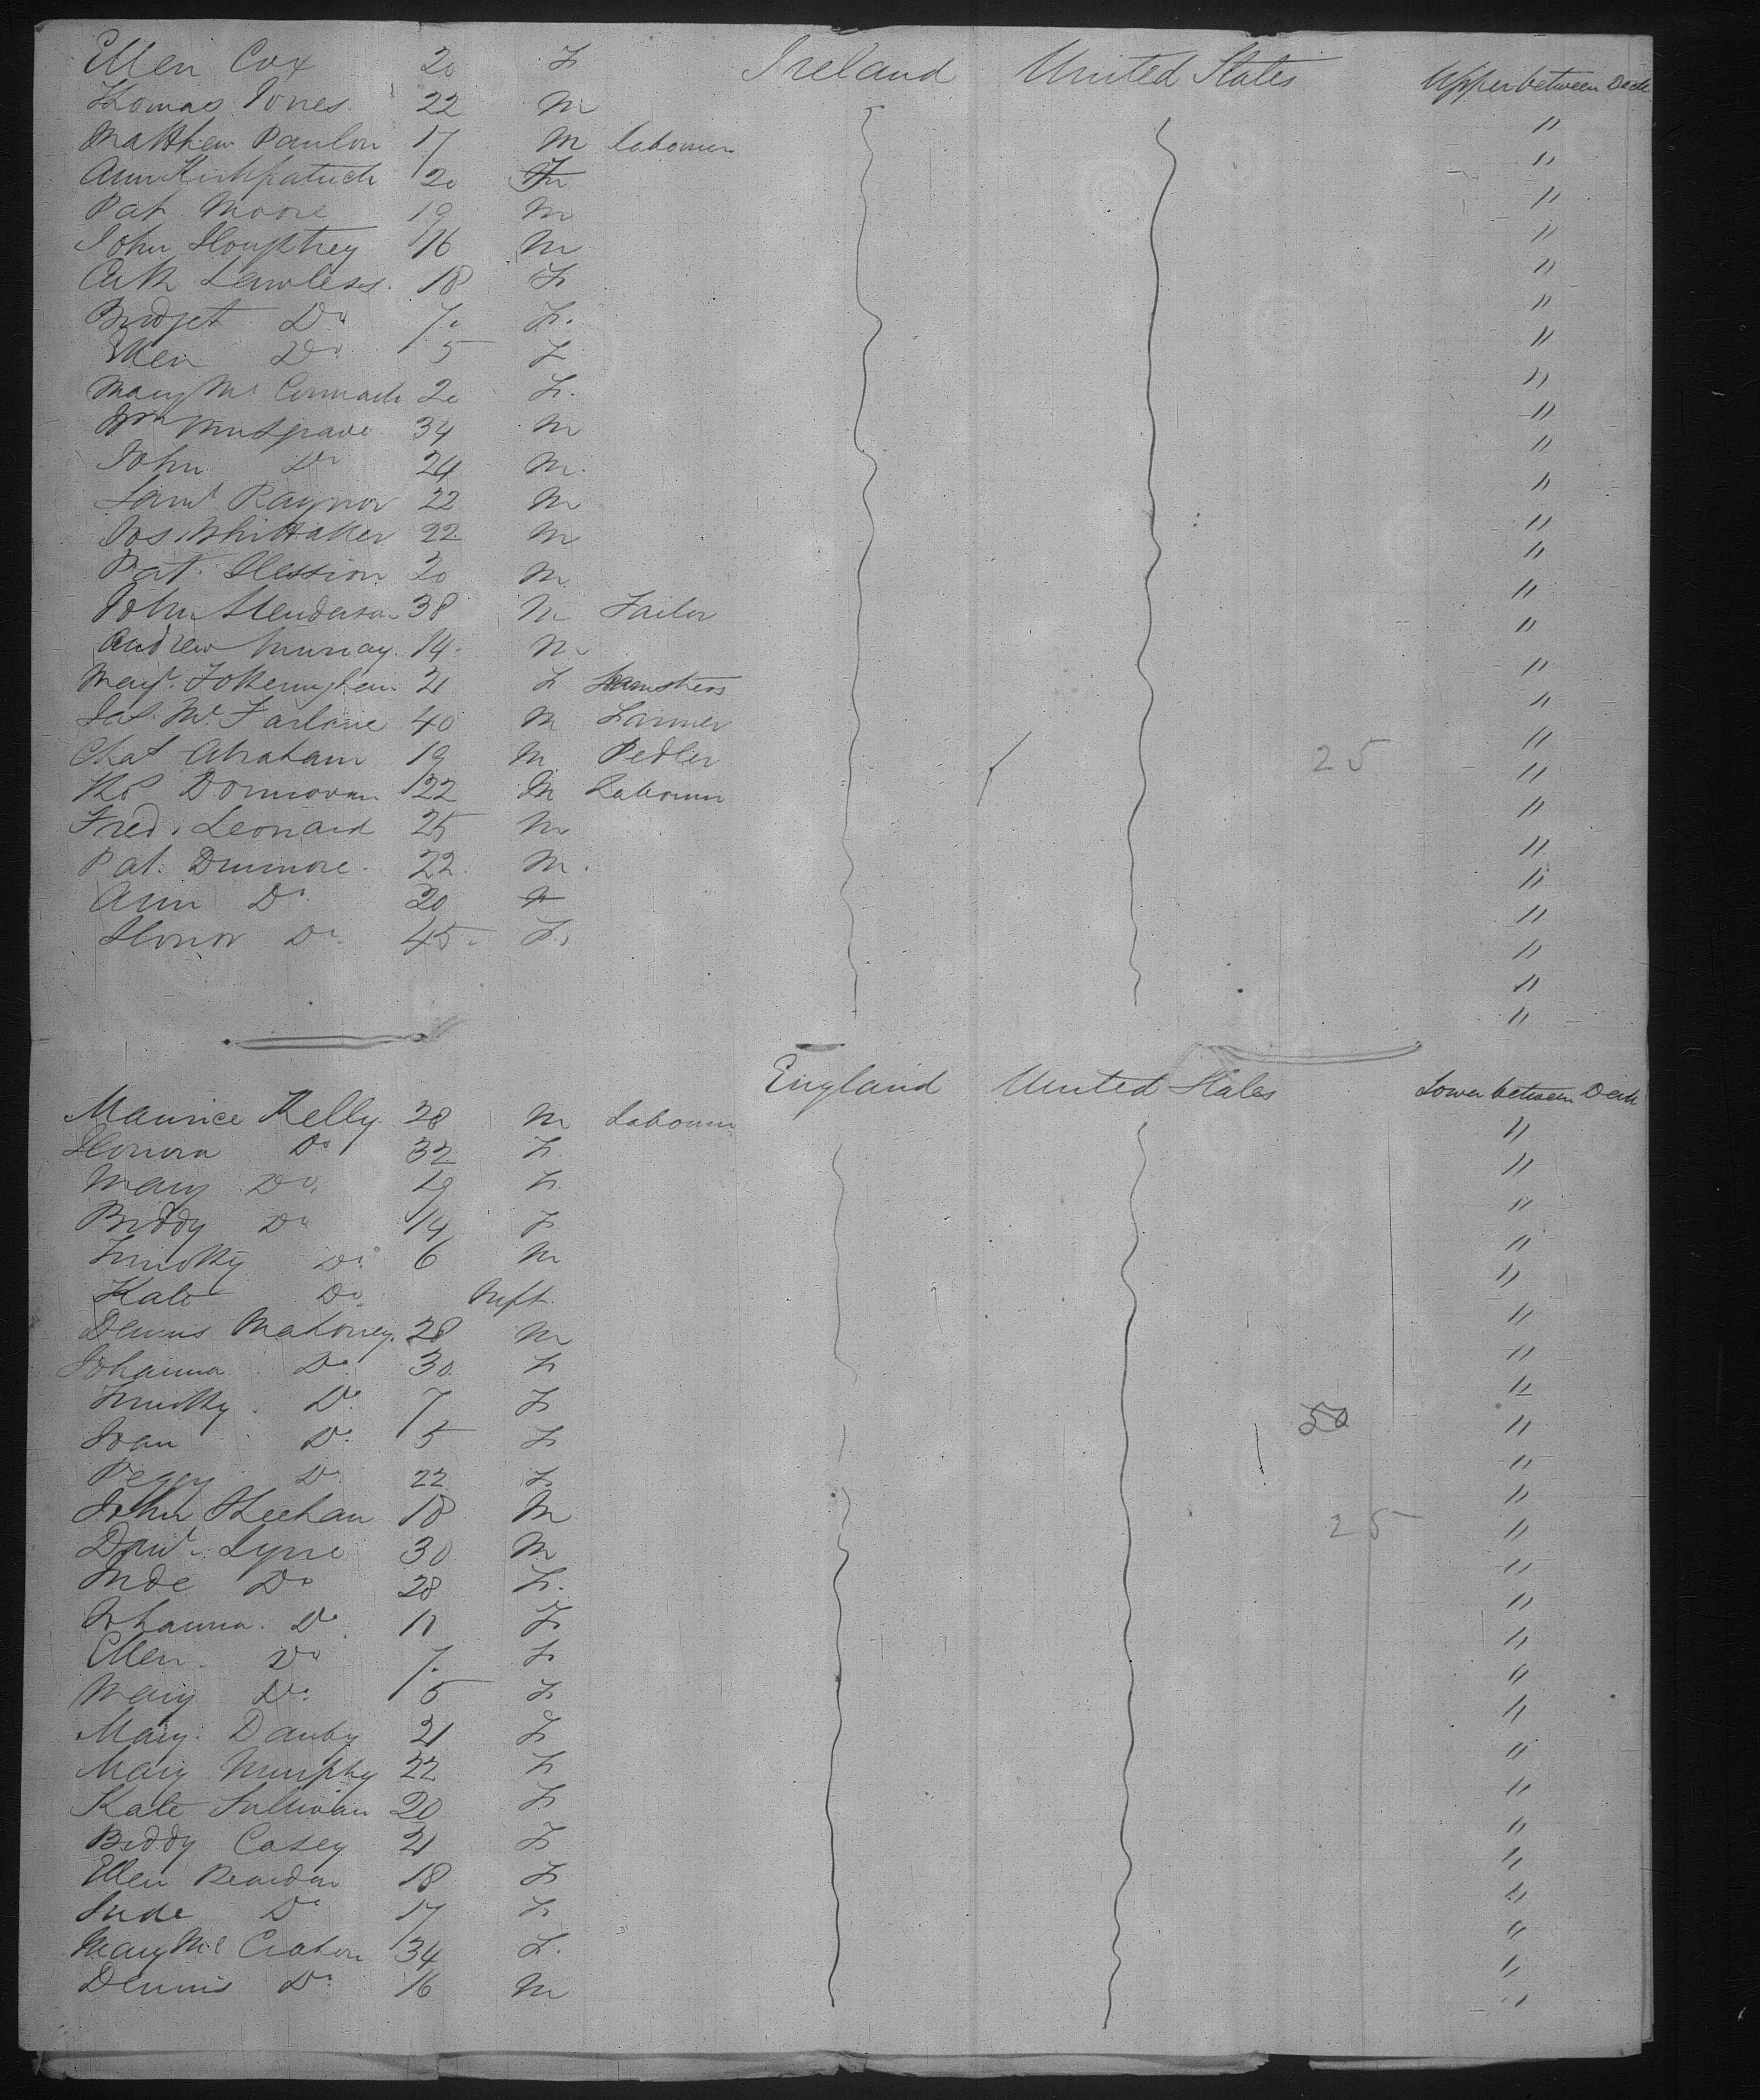 Ellen Cox 20 F Ireland United States Upper between Deck
Thomas Jones 22 M "
Matthew Panlon 17 M Labourer "
Ann Kirkpatrick 20 F "
Pat Moore 19 M "
John Houghtrey 16 M "
Cath Lawless 18 F "
Bridget Do 7 F "
Ellen Do 5 F "
Mary Mc Cormack 20 F "
Wm Musgrave 34 M "
John Do 24 M "
Saml Raynor 22 M "
Jos. Whittaker 22 M "
Pat. Hession 20 M "
John Henderson 38 M Tailor "
Andrew Murray 14 M "
Mary Fotheringham 21 F Seamstress "
Jas. Mc Farlane 40 M Farmer "
Chas Abraham 19 M Pedler 25 "
Ths Donnovan 22 M Labourer "
Fred. Leonard 25 M "
Pat. Dunmore 22 M "
Ann Do 20 F "
Honor Do 45 F "
"
"
England United States Lower between Deck
Maurice Kelly 28 M Labourer "
Honora Do 32 F "
Mary Do 19 F "
Biddy Do 14 F "
Timothy Do 6 M "
Kate Do Inft "
Dennis Mahoney 28 M "
Johanna Do 30 F "
Timothy Do 7 F "
Joan Do 5 F 50 "
Peggy Do 22 F "
John Sheehan 18 M "
Davd Lyne 30 M 25 "
Jude Do 28 F "
Johanna Do 11 F "
Ellen Do 7 F "
Mary Do 5 F "
Mary Danby 21 F "
Mary Murphy 22 F "
Kate Sullivan 20 F "
Biddy Casey 21 F "
Ellen Reardon 18 F "
Jude Do 17 F "
Mary Mc Crohon 34 F "
Dennis Do 16 M "